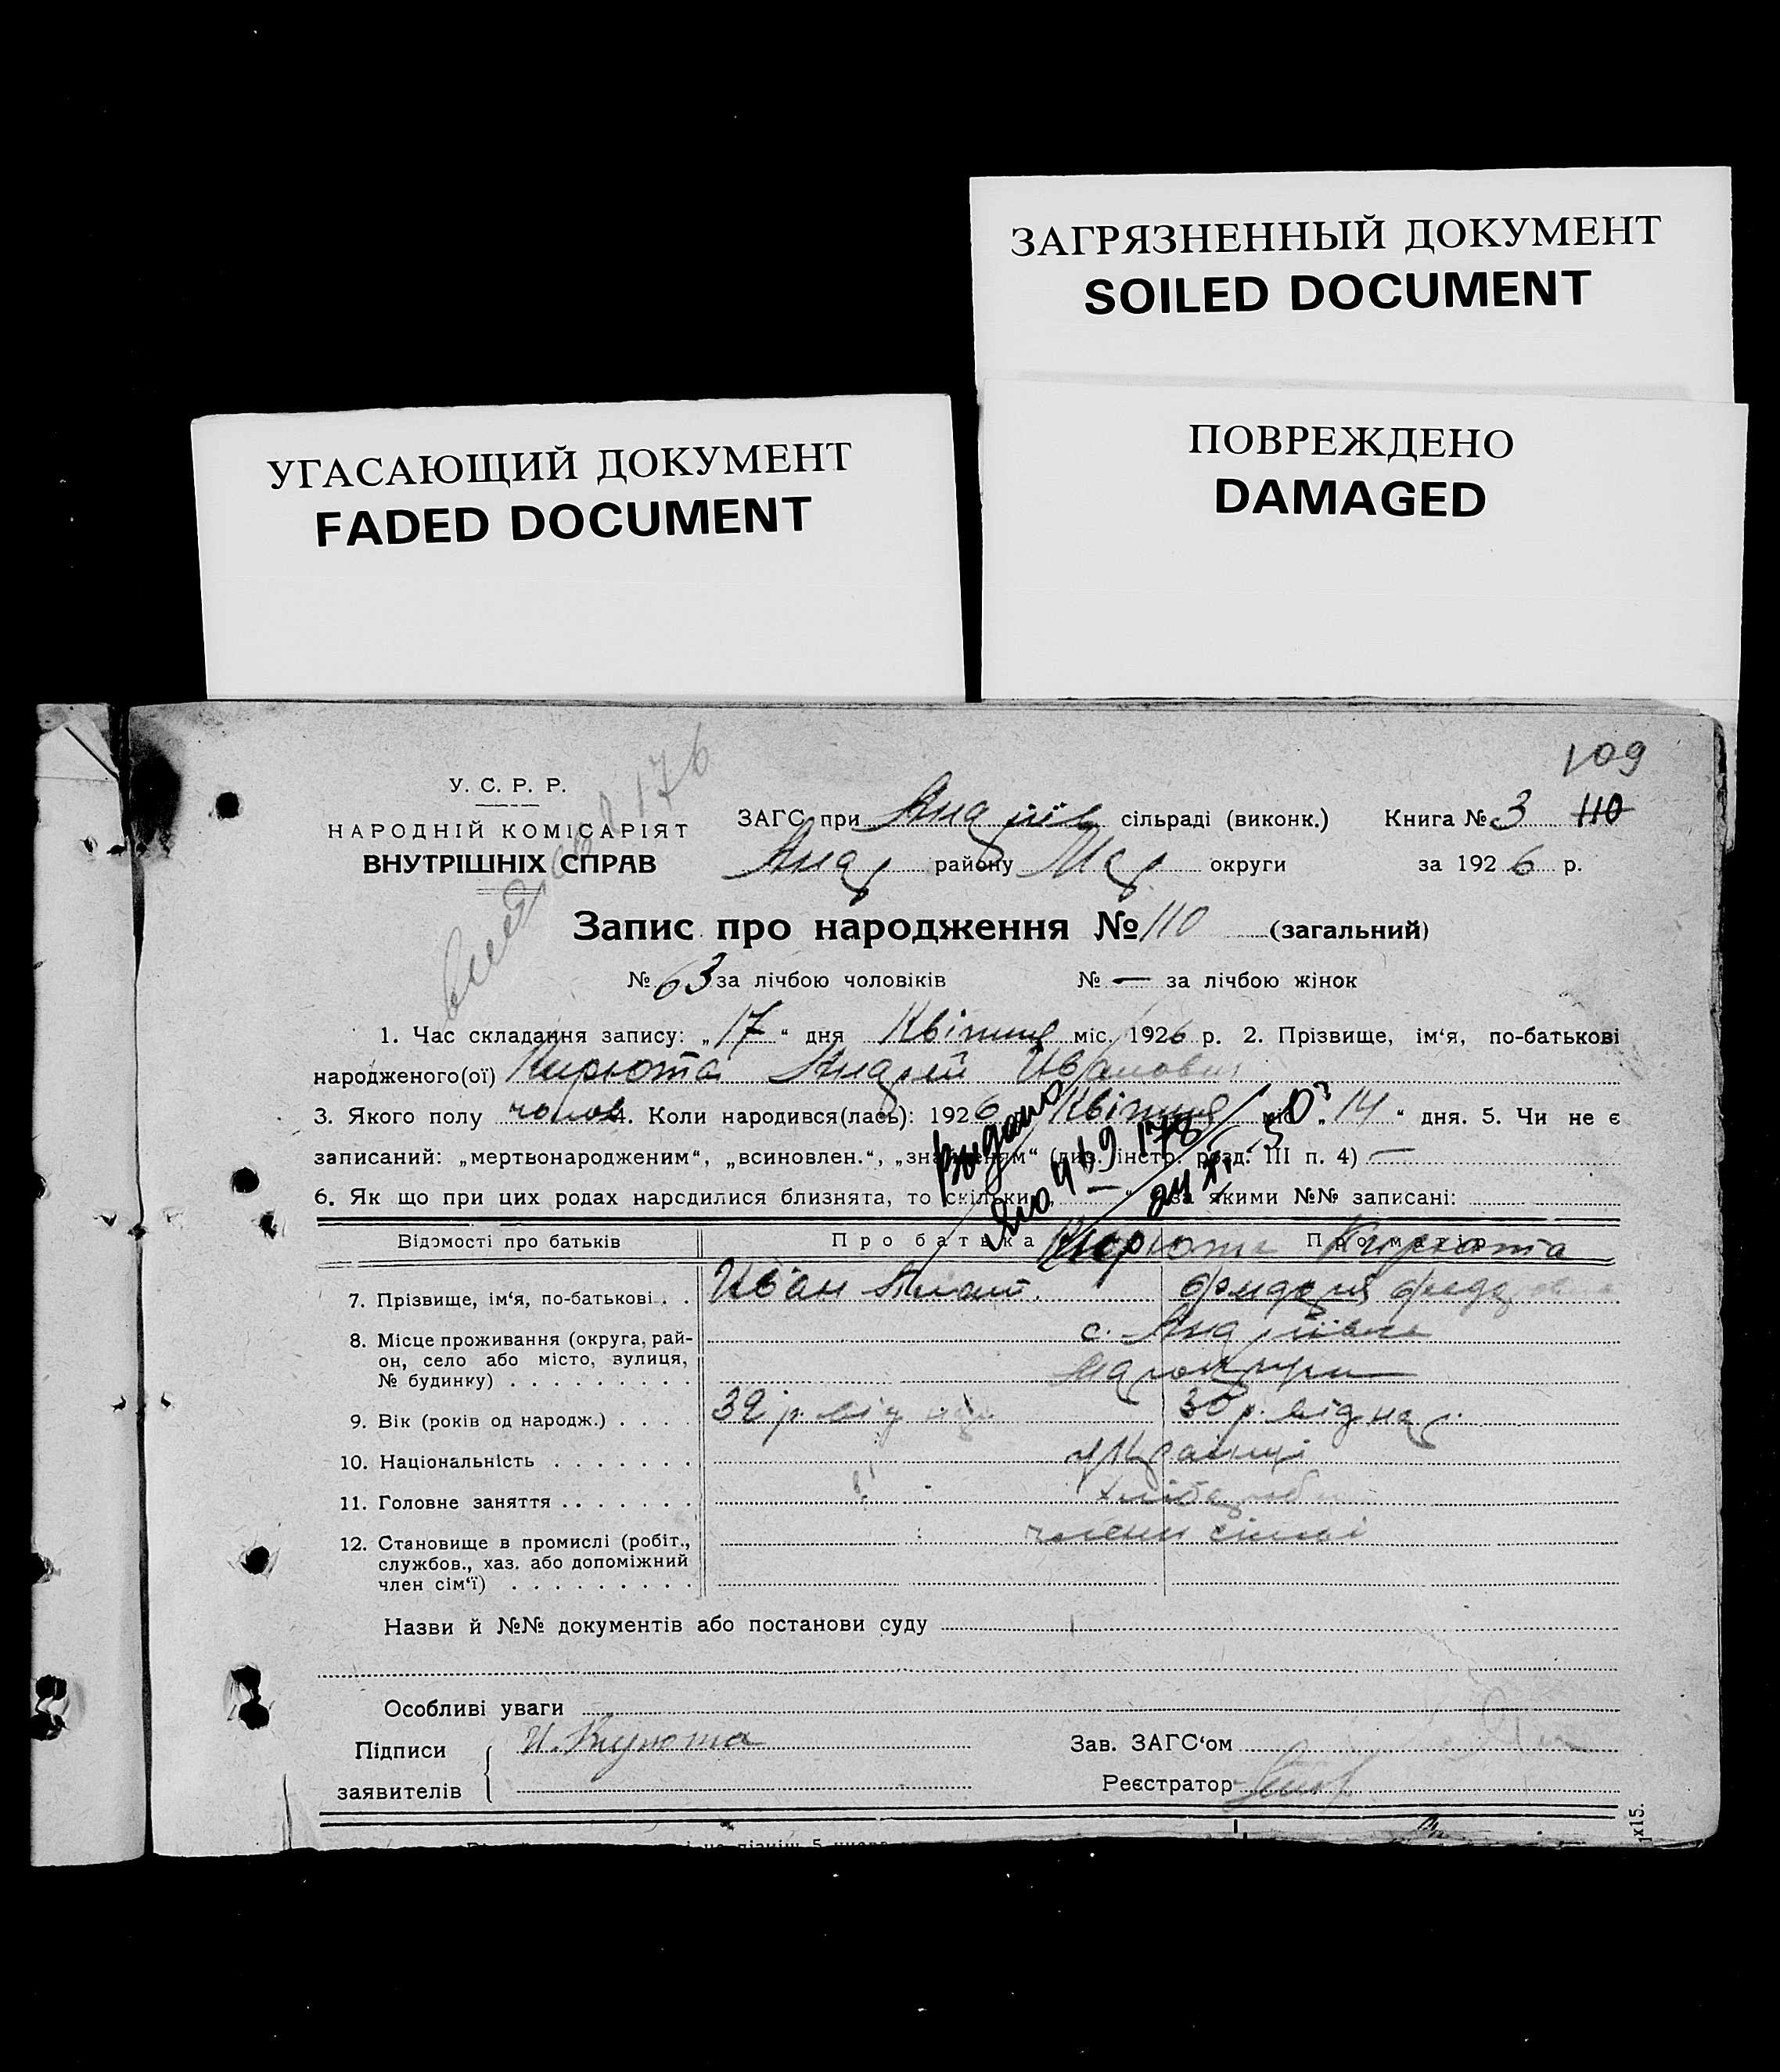 ЗАГРЯЗНЕННЫЙ ДОКУМЕНТ
SOILED DOCUMENT
УГАСАЮЩИЙ ДОКУМЕНТ
FADED DOCUMENT
ПОВРЕЖДЕНО
DAMAGED
109
У. С. Р. Р.
НАРОДНІЙ КОМІСАРІЯТ
ВНУТРІШНІХ СПРАВ
176
ЗАГС при Андріїв сільраді (виконк.) Книга № 3 110
Андр району Мар округи за 1926 р.
Запис про народження № 110 (загальний)
№ 63 за лічбою чоловіків № — за лічбою жінок
1. Час складання запису: „17“ дня Квітня міс. 1926 р. 2. Прізвище, ім‘я, по-батькові
народженого(ої) Кирюта Андрій Иванович
3. Якого полу чолов 4. Коли народився(лась): 1926 Квітня міс. „14“ дня. 5. Чи не є
записаний: „мертвонародженим“, „всиновлен.“, „знайденям“ (див. інстр. розд. III п. 4) —
6. Як що при цих родах народилися близнята, то скільки „—“ за якими №№ записані:
Видано
Відомості про батьків Про батька Про матір
Кирюта Кирюта
7. Прізвище, ім‘я, по-батькові . . Иван
8. Місце проживання (округа, рай-
он, село або місто, вулиця,
№ будинку) . . . . . . . . .
с. Андріївка
Маріюпільщ
9. Вік (років од народж.) . . . . 32 р. від 30 р. від нар.
10. Національність . . . . . . . Українці
11. Головне заняття . . . . . . . хлібороб
12. Становище в промислі (робіт.,
службов., хаз. або допоміжний
член сім‘ї) . . . . . . . . .
члени сімьі
Назви й №№ документів або постанови суду
Особливі уваги
Підписи И. Кирюта Зав. ЗАГС‘ом
заявителів Реєстратор